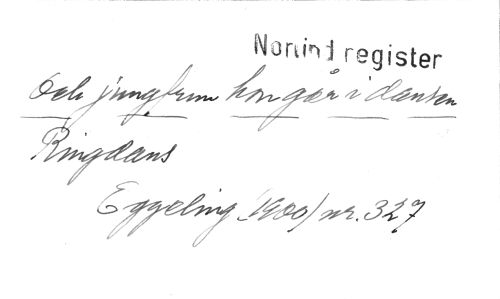 Norlind register
Och jungfrun hon går i dansen
Ringdans
Eggeling (1900) nr. 327